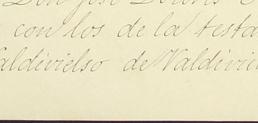 Don José Dolores
con los de la testa
aldivielso de Valdivie